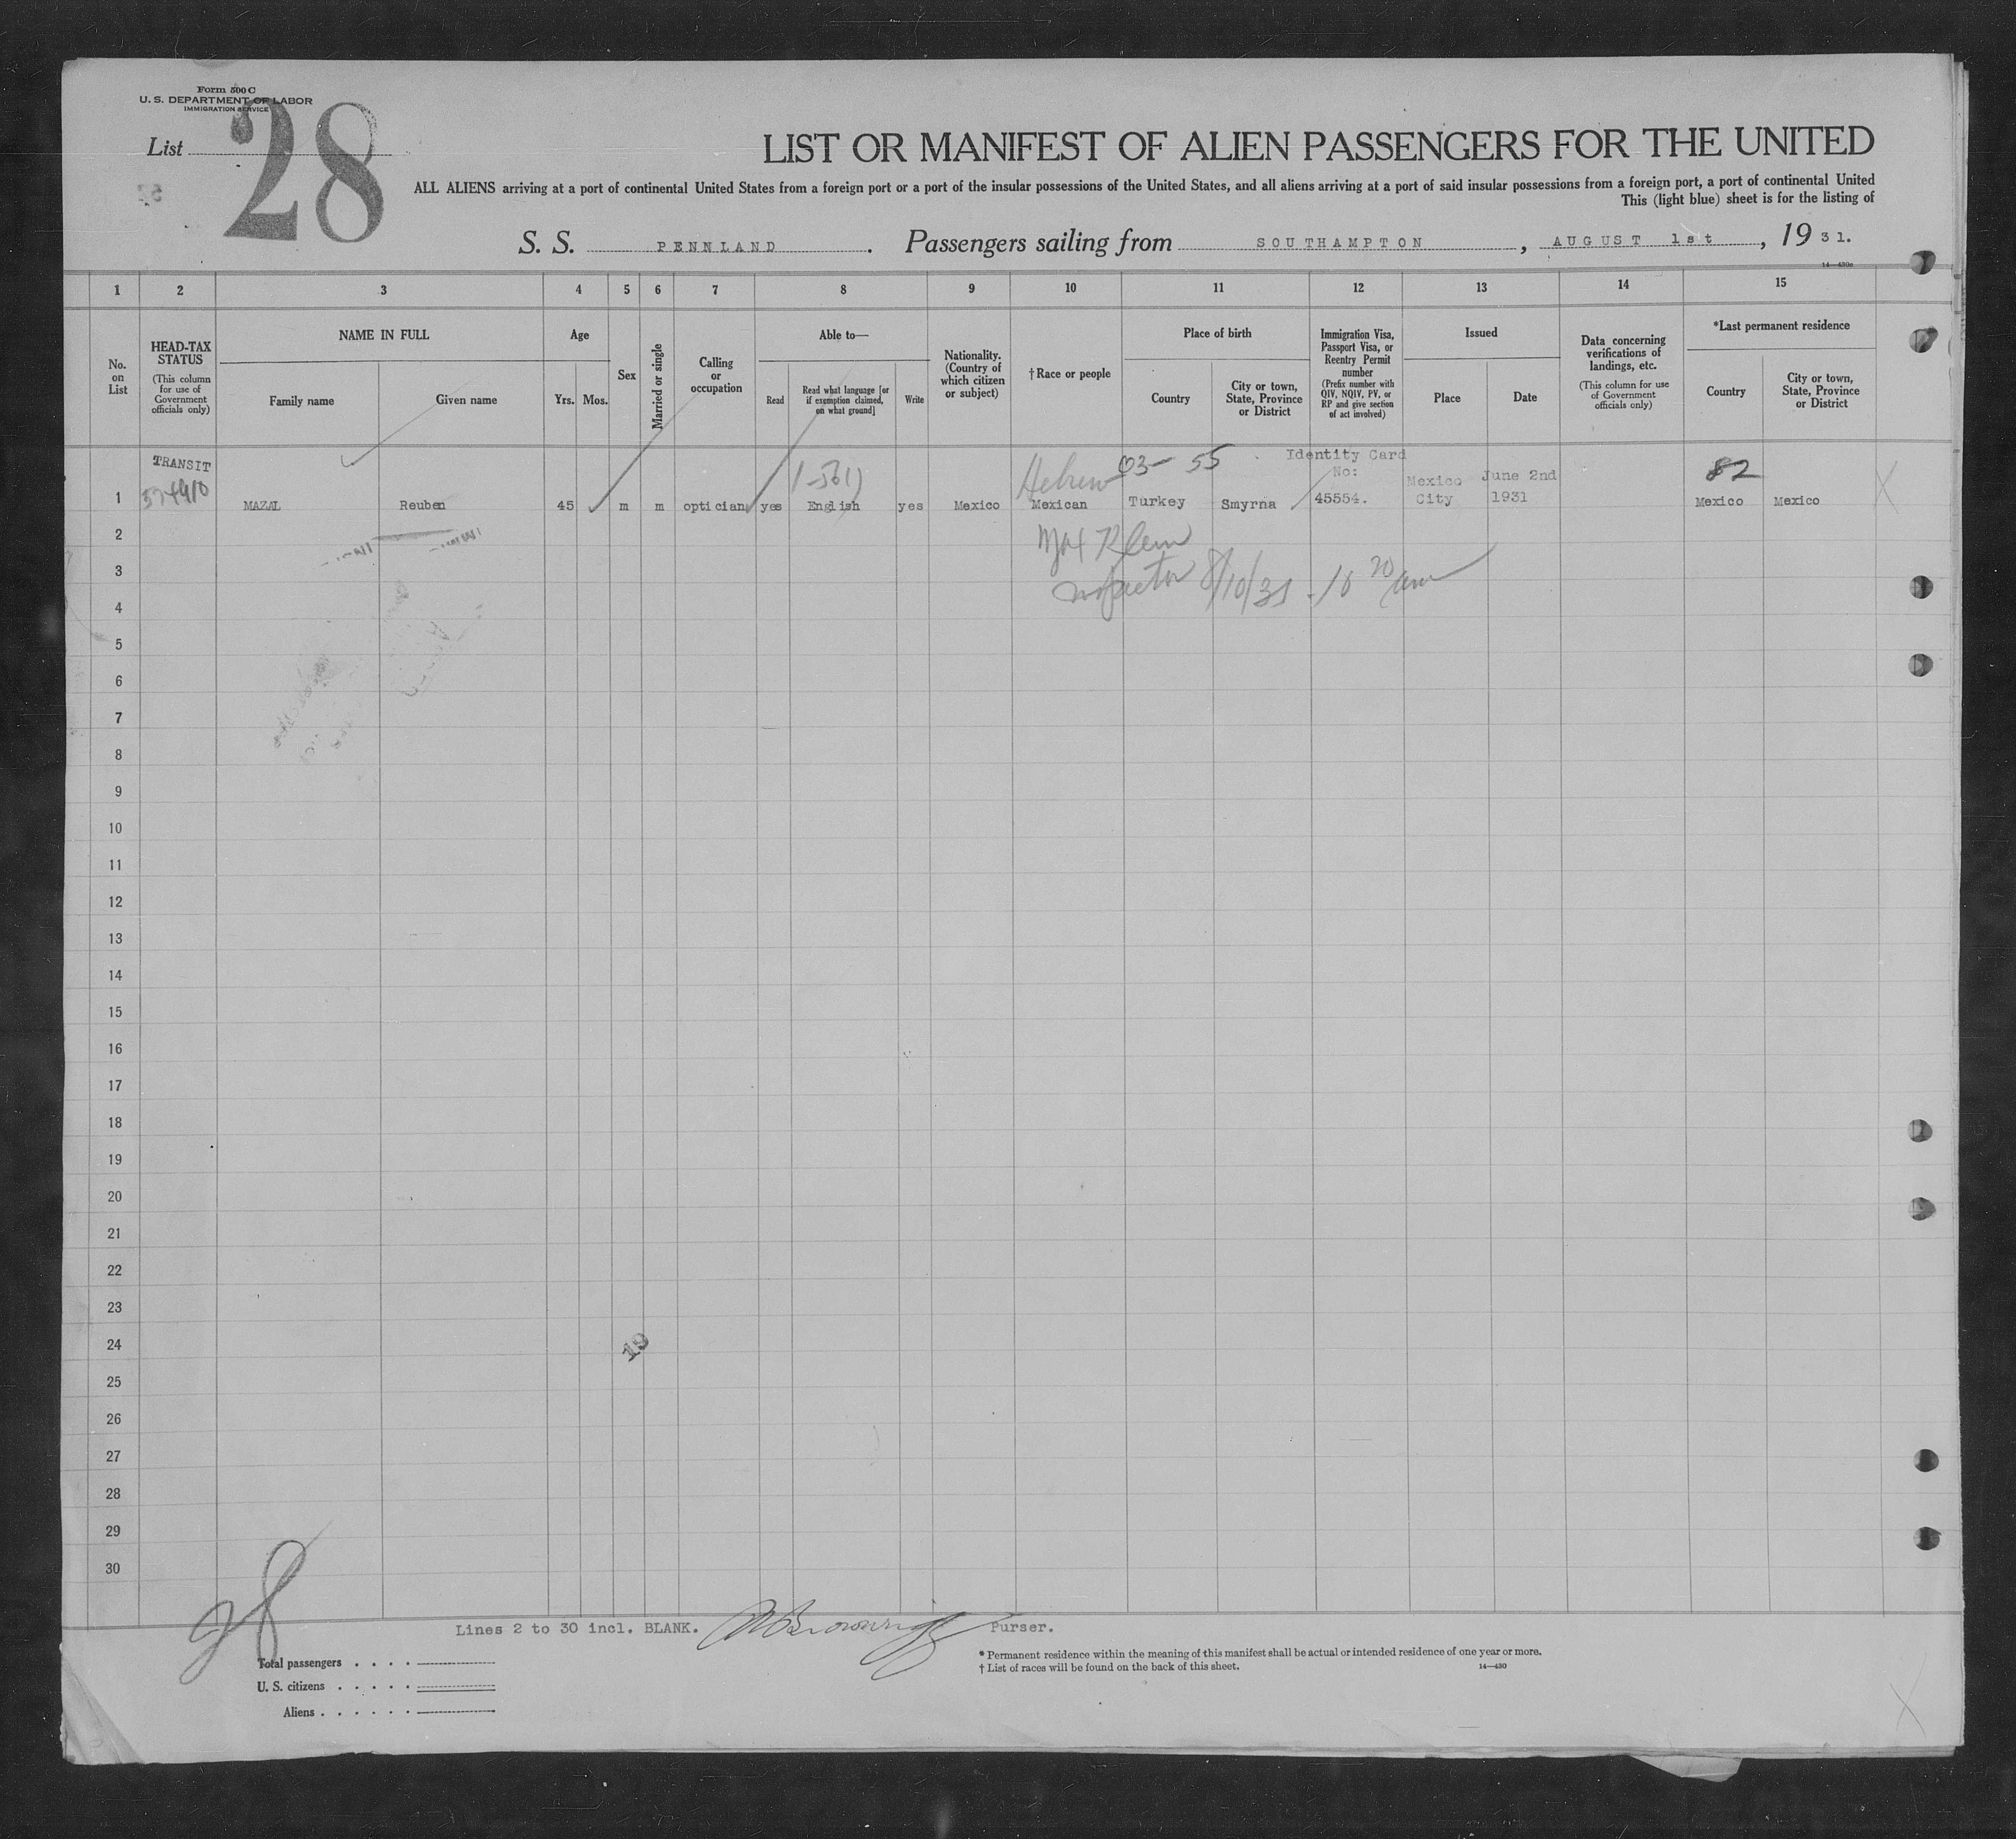 Form 500 C
U. S. DEPARTMENT OF LABOR
IMMIGRATION SERVICE
List 28
LIST OR MANIFEST OF ALIEN PASSENGERS FOR THE UNITED
ALL ALIENS arriving at a port of continental United States from a foreign port or a port of the insular possessions of the United States, and all aliens arriving at a port of said insular possessions from a foreign port, a port of continental United
This (light blue) sheet is for the listing of
S. S. PENNLAND. Passengers sailing from SOUTHAMPTON, AUGUST 1st, 19 31.
14—430c
1 2 3 4 5 6 7 8 9 10 11 12 13 14 15
No. on List
HEAD-TAX STATUS
(This column for use of Government officials only)
NAME IN FULL
Family name
Given name
Age
Yrs. Mos.
Sex
Married or single
Calling or occupation
Able to—
Read
Read what language [or if exemption claimed, on what ground]
Write
Nationality. (Country of which citizen or subject)
†Race or people
Place of birth
Country
City or town, State, Province or District
Immigration Visa, Passport Visa, or Reentry Permit number
(Prefix number with QIV, NQIV, PV, or RP and give section of act involved)
Issued
Place
Date
Data concerning verifications of landings, etc.
(This column for use of Government officials only)
*Last permanent residence
Country
City or town, State, Province or District
TRANSIT Hebrew 03- 55 Identity Card No: 82
1 MAZAL Reuben 45 m m optician yes English yes Mexico Mexican Turkey Smyrna 45554. Mexico City June 2nd 1931 Mexico Mexico
2
3 Inspector 8/10/31 - 10 20 am
4
5
6
7
8
9
10
11
12
13
14
15
16
17
18
19
20
21
22
23
24
19
25
26
27
28
29
30
28
Lines 2 to 30 incl. BLANK. Purser.
Total passengers
U. S. citizens
Aliens
* Permanent residence within the meaning of this manifest shall be actual or intended residence of one year or more.
† List of races will be found on the back of this sheet.
14—430